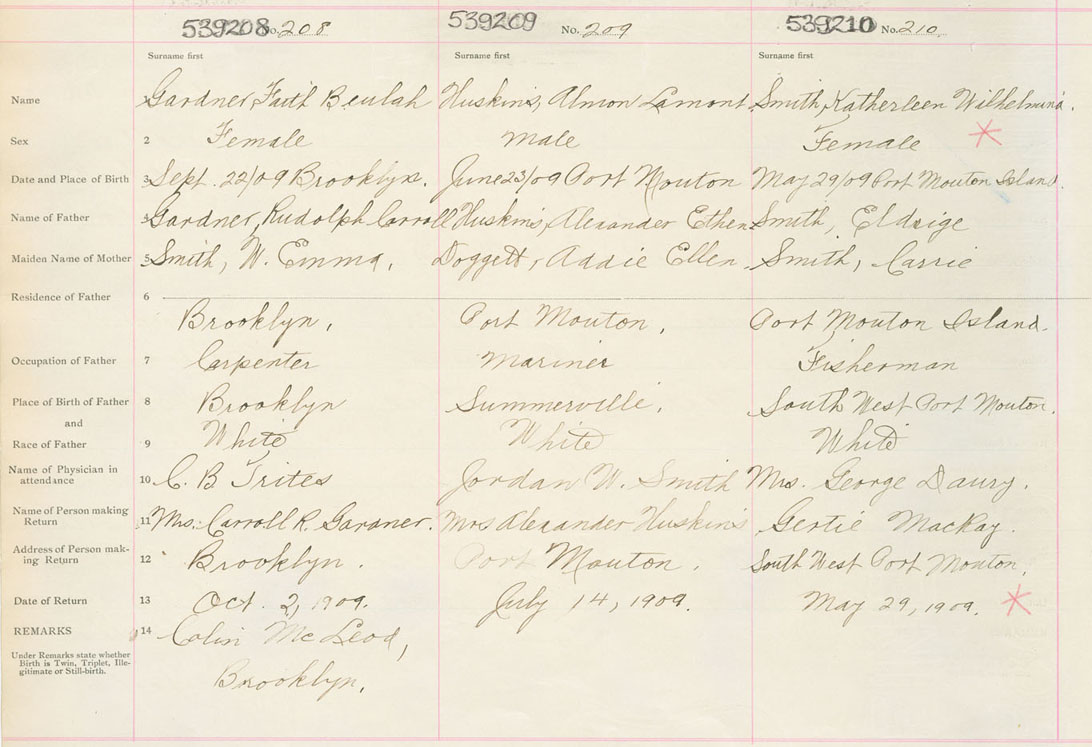 539208 No. 208 539209 No. 209 539210 No. 210
Surname first Surname first Surname first
Name 1 Gardner, Faith Beulah Huskins, Almon Lamont Smith, Katherleen Wilhelmina.
Sex 2 Female Male Female
Date and Place of Birth 3 Sept. 22/09 Brooklyn. June 23/09 Port Mouton May 29/09 Port Mouton Island.
Name of Father 4 Gardner, Rudolph Carroll Huskins, Alexander Ethen Smith, Eldrige
Maiden Name of Mother 5 Smith, W. Emma. Doggett, Addie Ellen. Smith, Carrie
Residence of Father 6
Brooklyn. Port Mouton. Port Mouton Island.
Occupation of Father 7 Carpenter Mariner Fisherman
Place of Birth of Father 8 Brooklyn Summerville. South West Port Mouton.
and
Race of Father 9 White White White
Name of Physician in
attendance 10 C. B. Trites Jordan W. Smith Mrs. George Daury.
Name of Person making
Return 11 Mrs. Carroll R. Gardner. Mrs Alexander Huskins Gertie MacKay.
Address of Person mak-
ing Return 12 Brooklyn. Port Mouton. South West Port Mouton.
Date of Return 13 Oct. 2, 1909. July 14, 1909. May 29, 1909.
REMARKS 14 Colin McLeod,
Under Remarks state whether
Birth is Twin, Triplet, Ille-
gitimate or Still-birth.
Brooklyn.